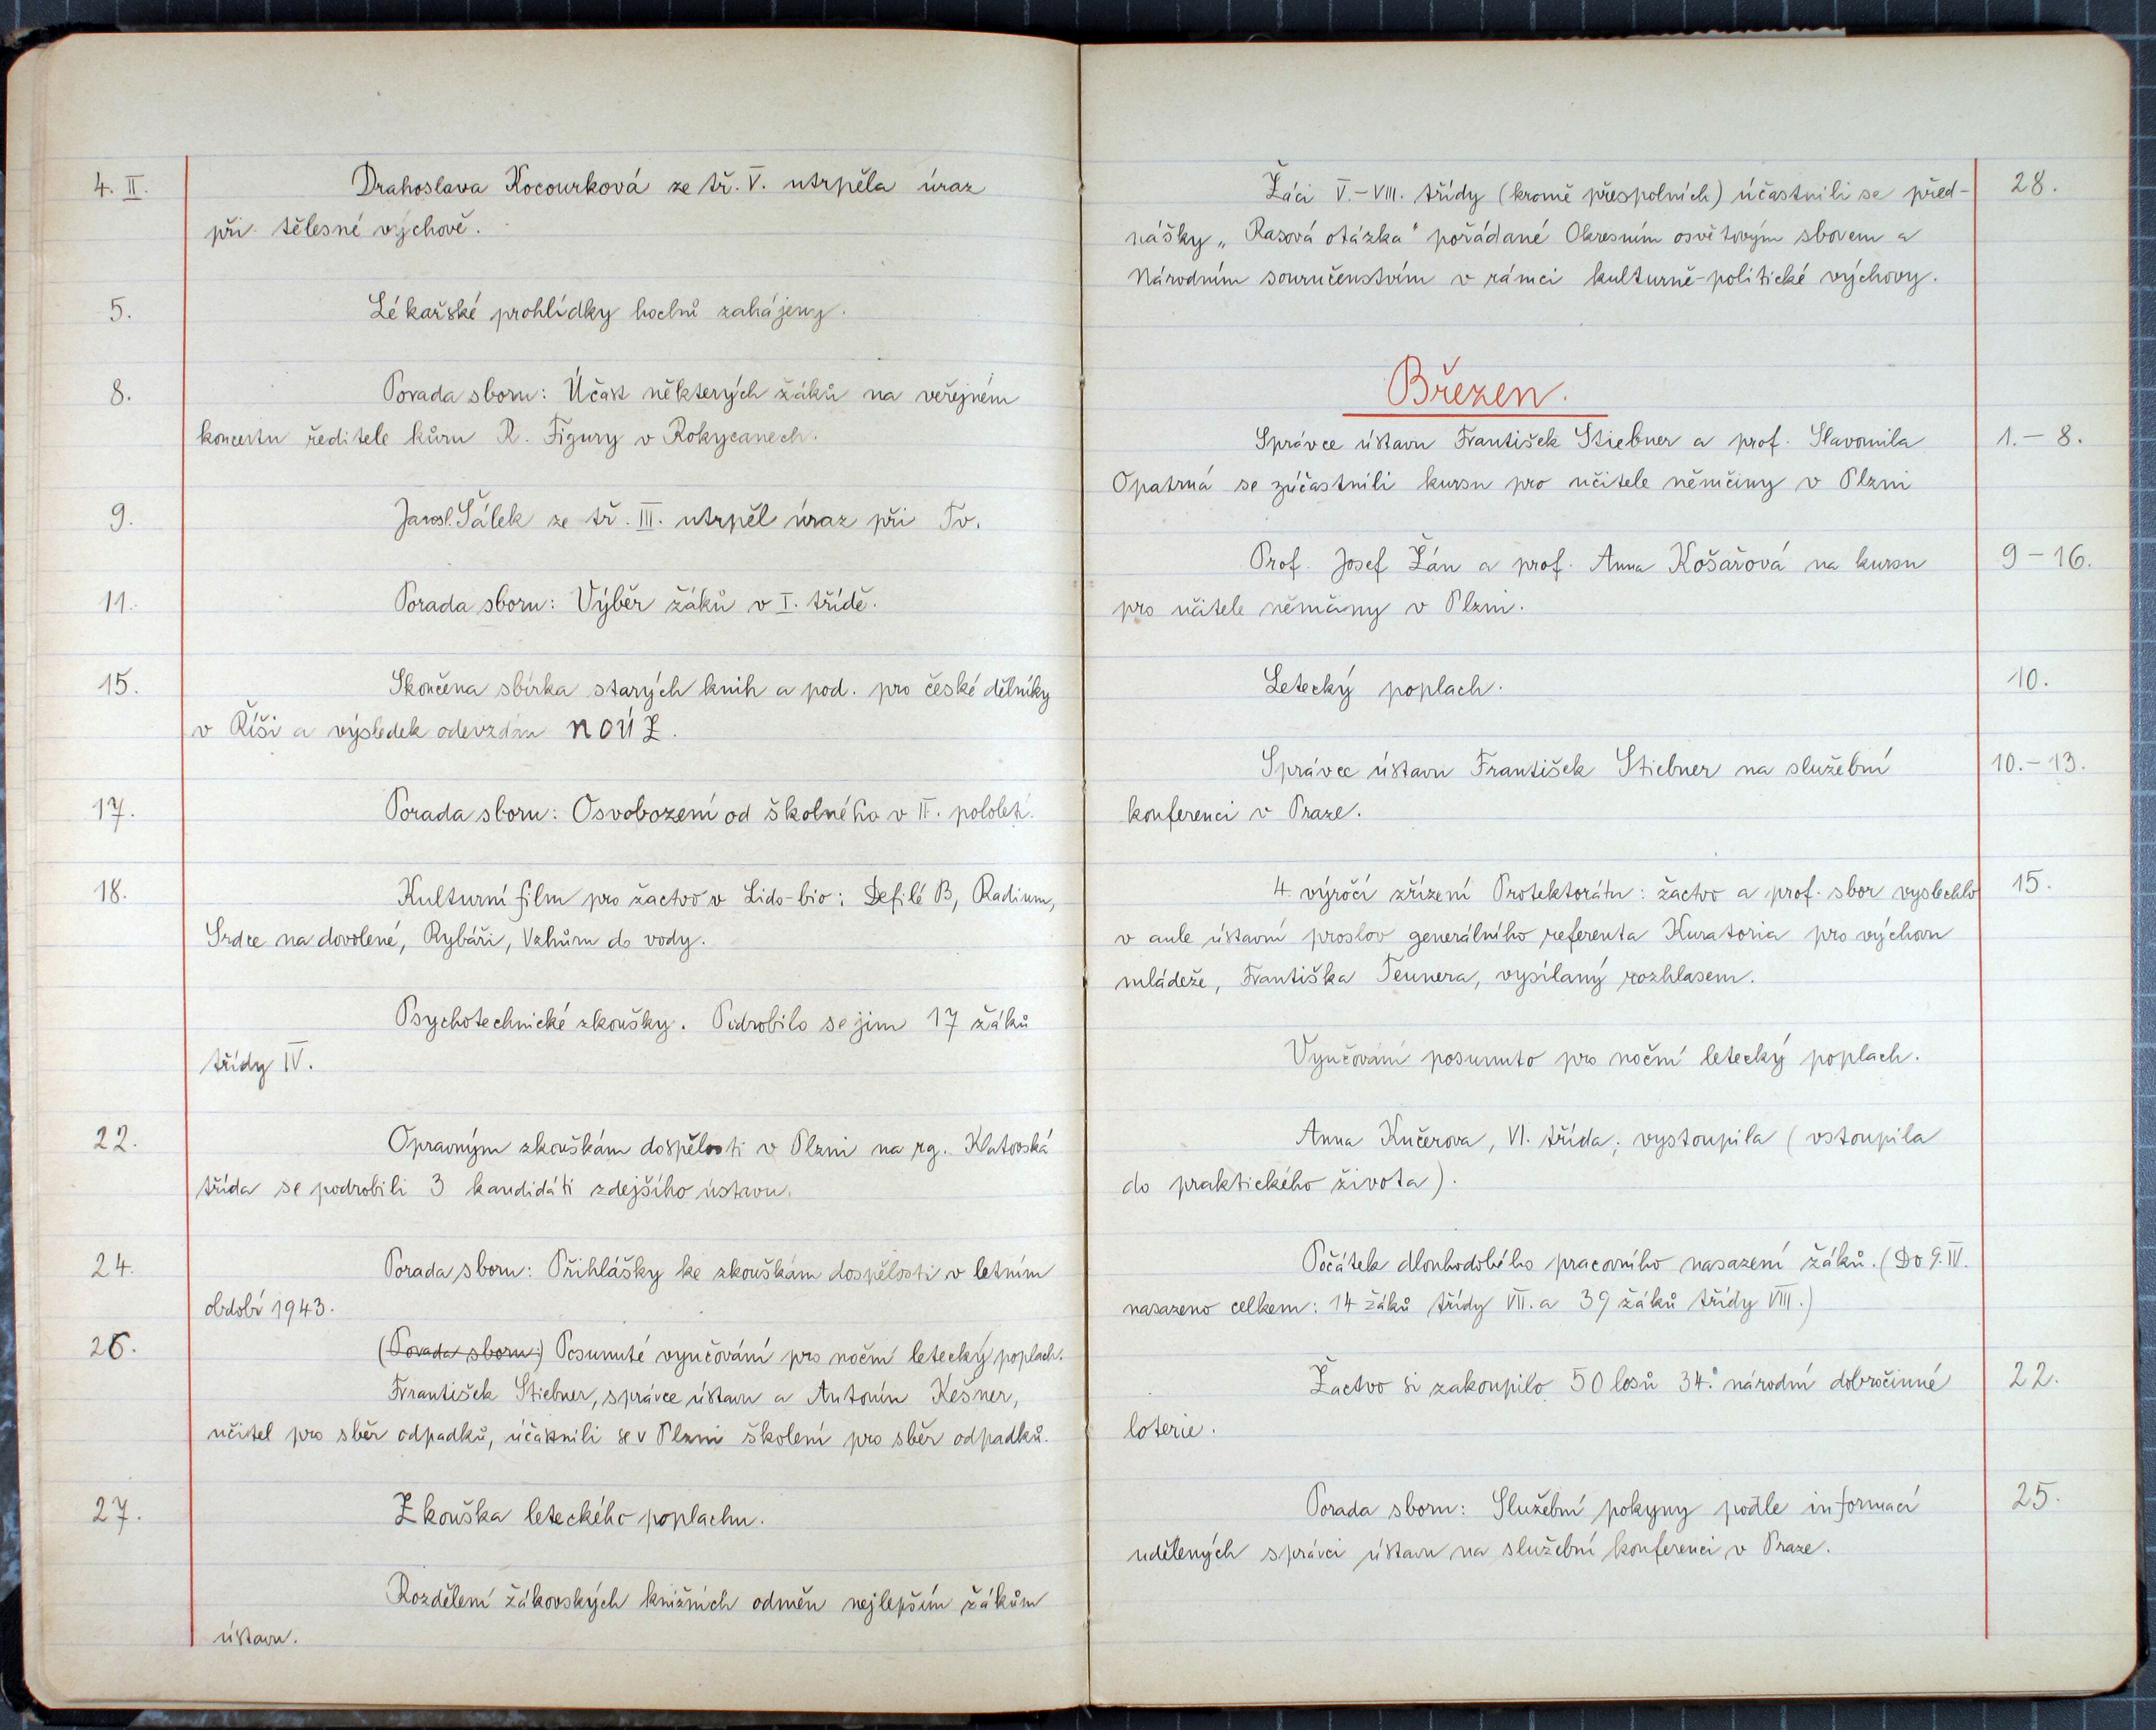 4. II. Drahoslava Kocourková ze tř. V. utrpěla úraz
při tělesné výchově.
5. Lékařské prohlídky hochů zahájeny.
8. Porada sboru: Účast některých žáků na veřejném
koncertu ředitele kůru R. Figury v Rokycanech.
9. Jarosl. Šálek ze tř. III. utrpěl úraz při Tv.
11. Porada sboru: Výběr žáků v I. třídě.
15. Skončena sbírka starých knih a pod. pro české dělníky
v Říši a výsledek odevzdán NOÚZ.
17. Porada sboru: Osvobození od školného v II. pololetí.
18. Kulturní film pro žactvo v Lido-bio: Defilé B, Radium,
Srdce na dovolené, Rybáři, Vzhůru do vody.
Psychotechnické zkoušky. Podrobilo se jim 17 žáků
třídy IV.
22. Opravným zkouškám dospělosti v Plzni na rg. Klatovská
třída se podrobili 3 kandidáti zdejšího ústavu.
24. Porada sboru: Přihlášky ke zkouškám dospělosti v letním
období 1943.
26. (Porada sboru:) Posunuté vyučování pro noční letecký poplach.
František Stiebner, správce ústavu a Antonín Kešner,
učitel pro sběr odpadků, účastnili se v Plzni školení pro sběr odpadků.
27. Zkouška leteckého poplachu.
Rozdělení žákovských knižních odměn nejlepším žákům
ústavu.
Žáci V.-VIII. třídy (kromě přespolních) účastnili se před- 28.
nášky „Rasová otázka" pořádané Okresním osvětovým sborem a
Národním souručenstvím v rámci kulturně-politické výchovy.
Březen.
Správce ústavu František Stiebner a prof. Slavomila 1.-8.
Opatrná se zúčastnili kursu pro učitele němčiny v Plzni
Prof. Josef Žán a prof. Anna Košařová na kursu 9-16.
pro učitele němčiny v Plzni.
Letecký poplach. 10.
Správce ústavu František Stiebner na služební 10.-13.
konferenci v Praze.
4. výročí zřízení Protektorátu: žactvo a prof. sbor vyslechlo 15.
v aule ústavní proslov generálního referenta Kuratoria pro výchovu
mládeže, Františka Teunera, vysílaný rozhlasem.
Vyučování posunuto pro noční letecký poplach.
Anna Kučerova, VI. třída, vystoupila (vstoupila
do praktického života).
Počátek dlouhodobého pracovního nasazení žáků. (Do 9. IV.
nasazeno celkem: 14 žáků třídy VII. a 39 žáků třídy VIII.)
Žactvo si zakoupilo 50 losů 34. národní dobročinné 22.
loterie.
Porada sboru: Služební pokyny podle informací 25.
udělených správci ústavu na služební konferenci v Praze.